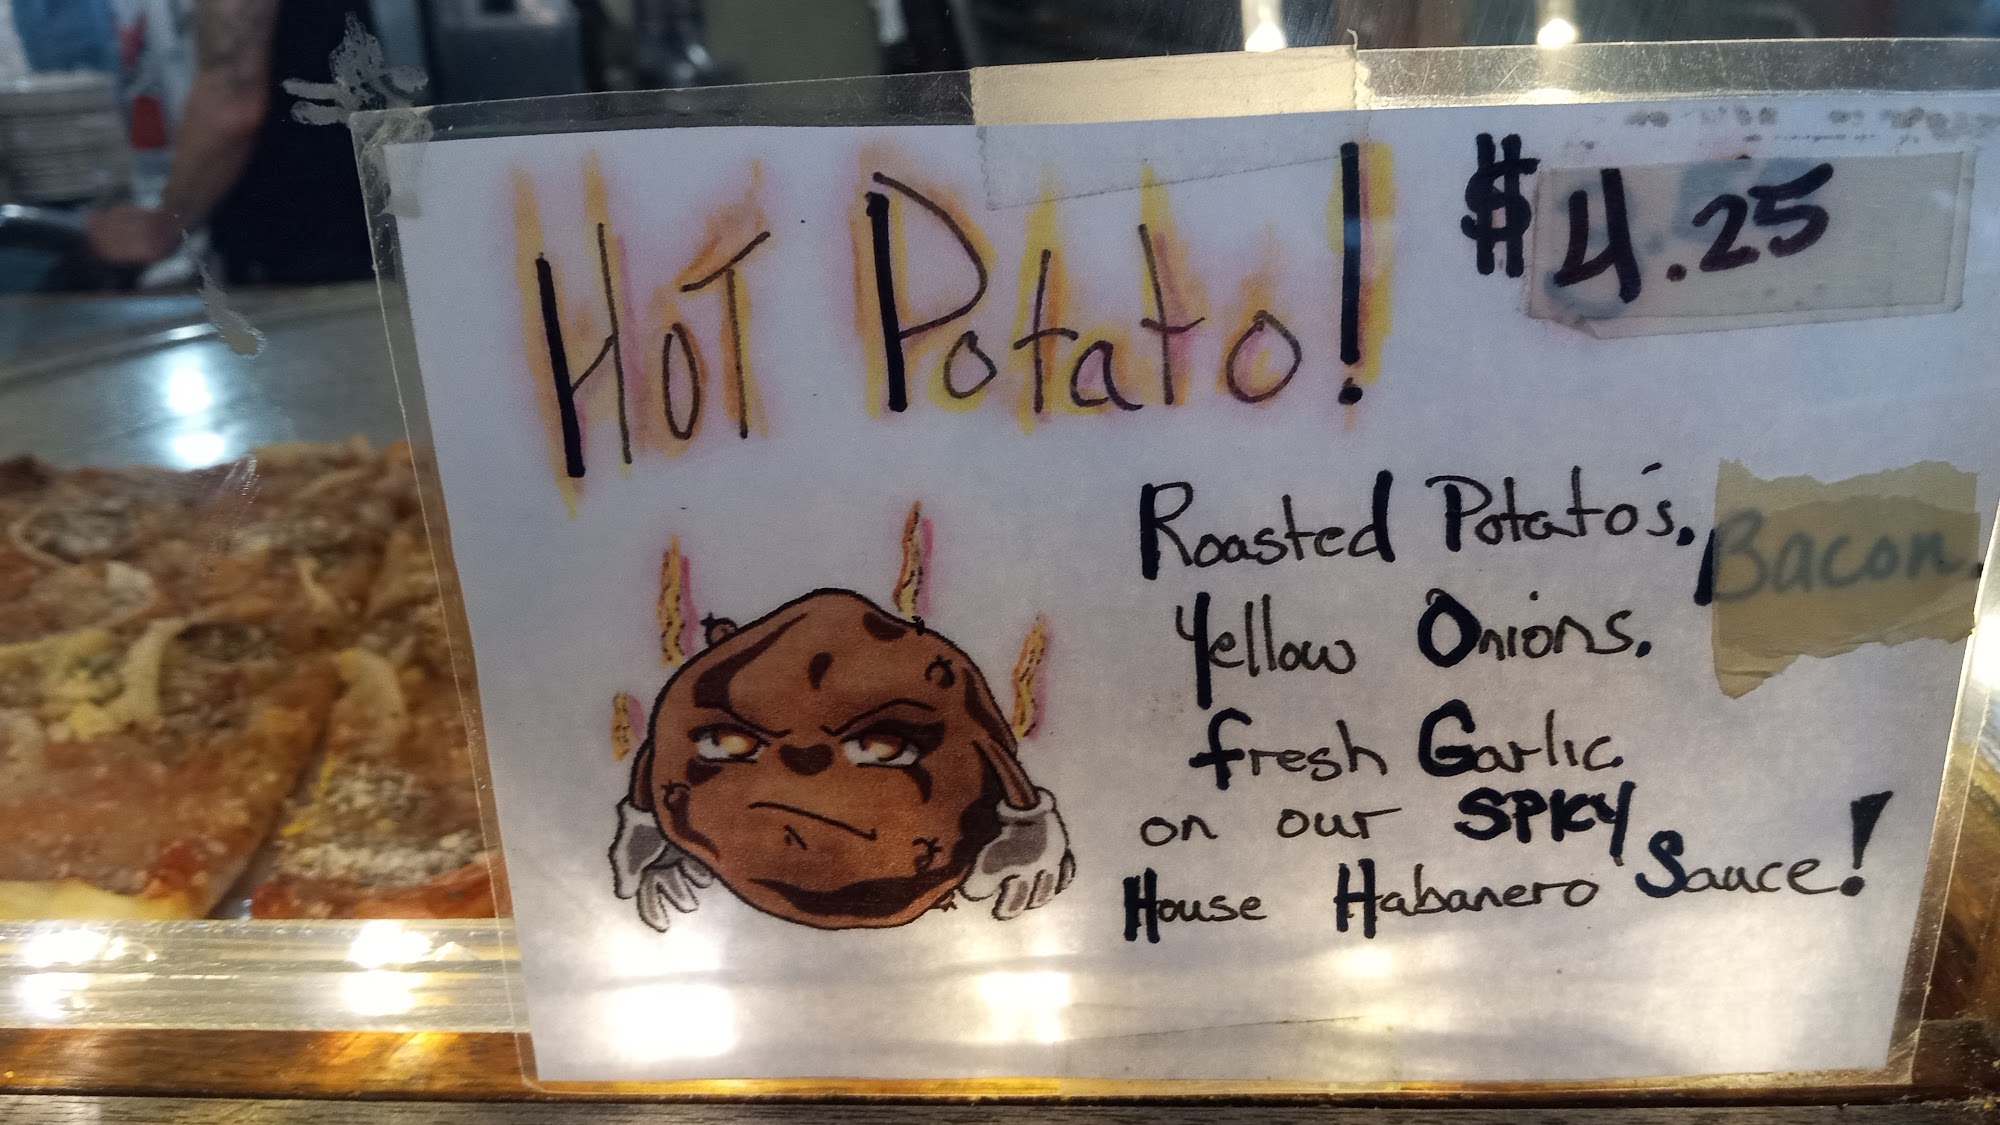 Hot Potato! $4.25
Roasted Potato's, Bacon.
Yellow Onions.
fresh Garlic.
on our SPICY
House Habanero Sauce!